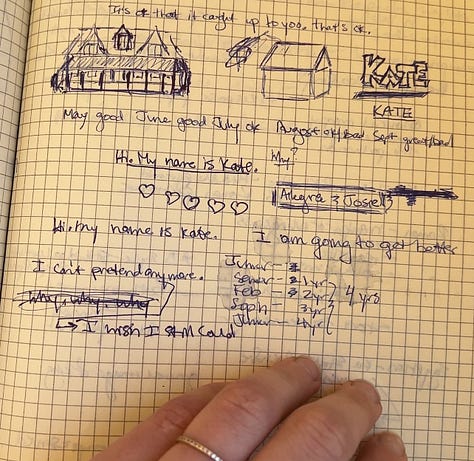 It's ok that it caught up to you, that's ok.
KATE
KATE
May good June good July ok August ok/bad Sept great/bad
Hi. My name is Kate.
Why?
Allegra & Josie
Hi. my name is Kate.
I am going to get better
I can't pretend anymore.
Why, why, why
I wish I still could
Junior -
Senior - 1yr
Feb - 2yr
Soph - 3yr
Junior - 4yr
4 yrs